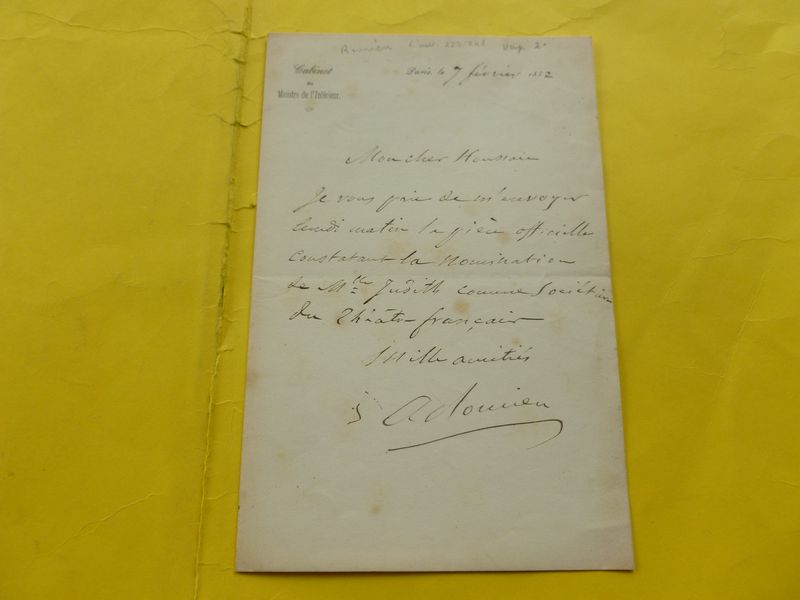 Cabinet
du
Ministre de l'Intérieur.
Paris, le 7 février 1852
Mon cher Houssaie
Je vous prie de m'envoyer
lundi matin la pièce officielle
constatant la nomination
de Mlle Judith comme Sociétaire
du Théâtre-français
Mille amitiés